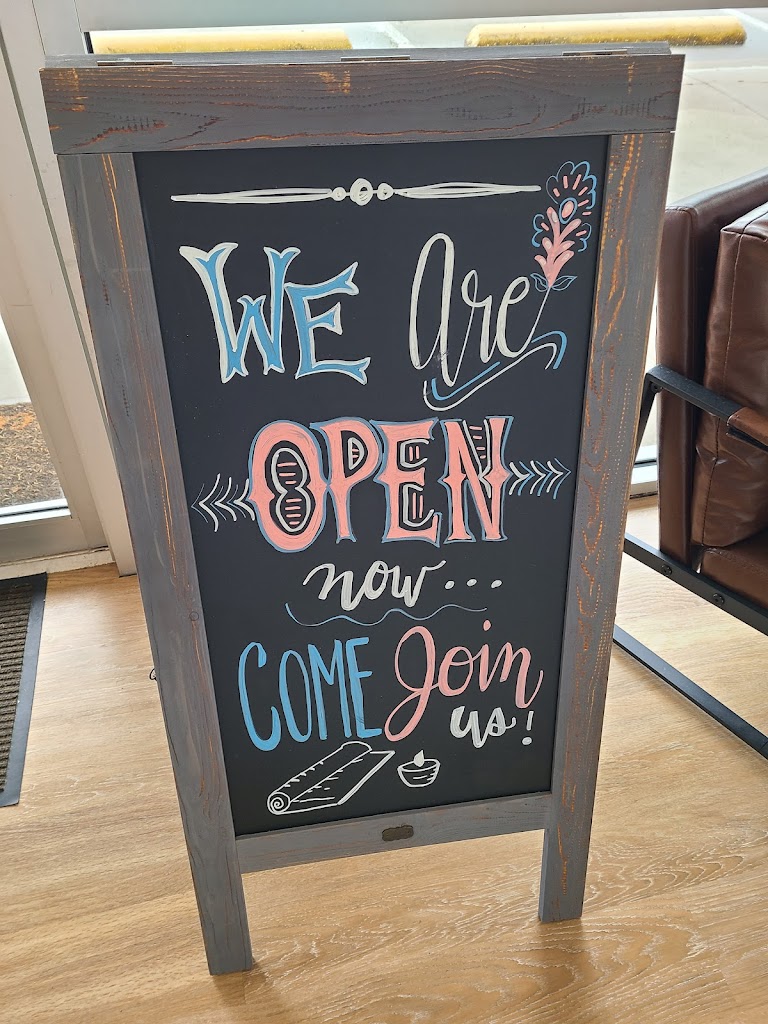 WE are
OPEN
now...
COME Join
us!